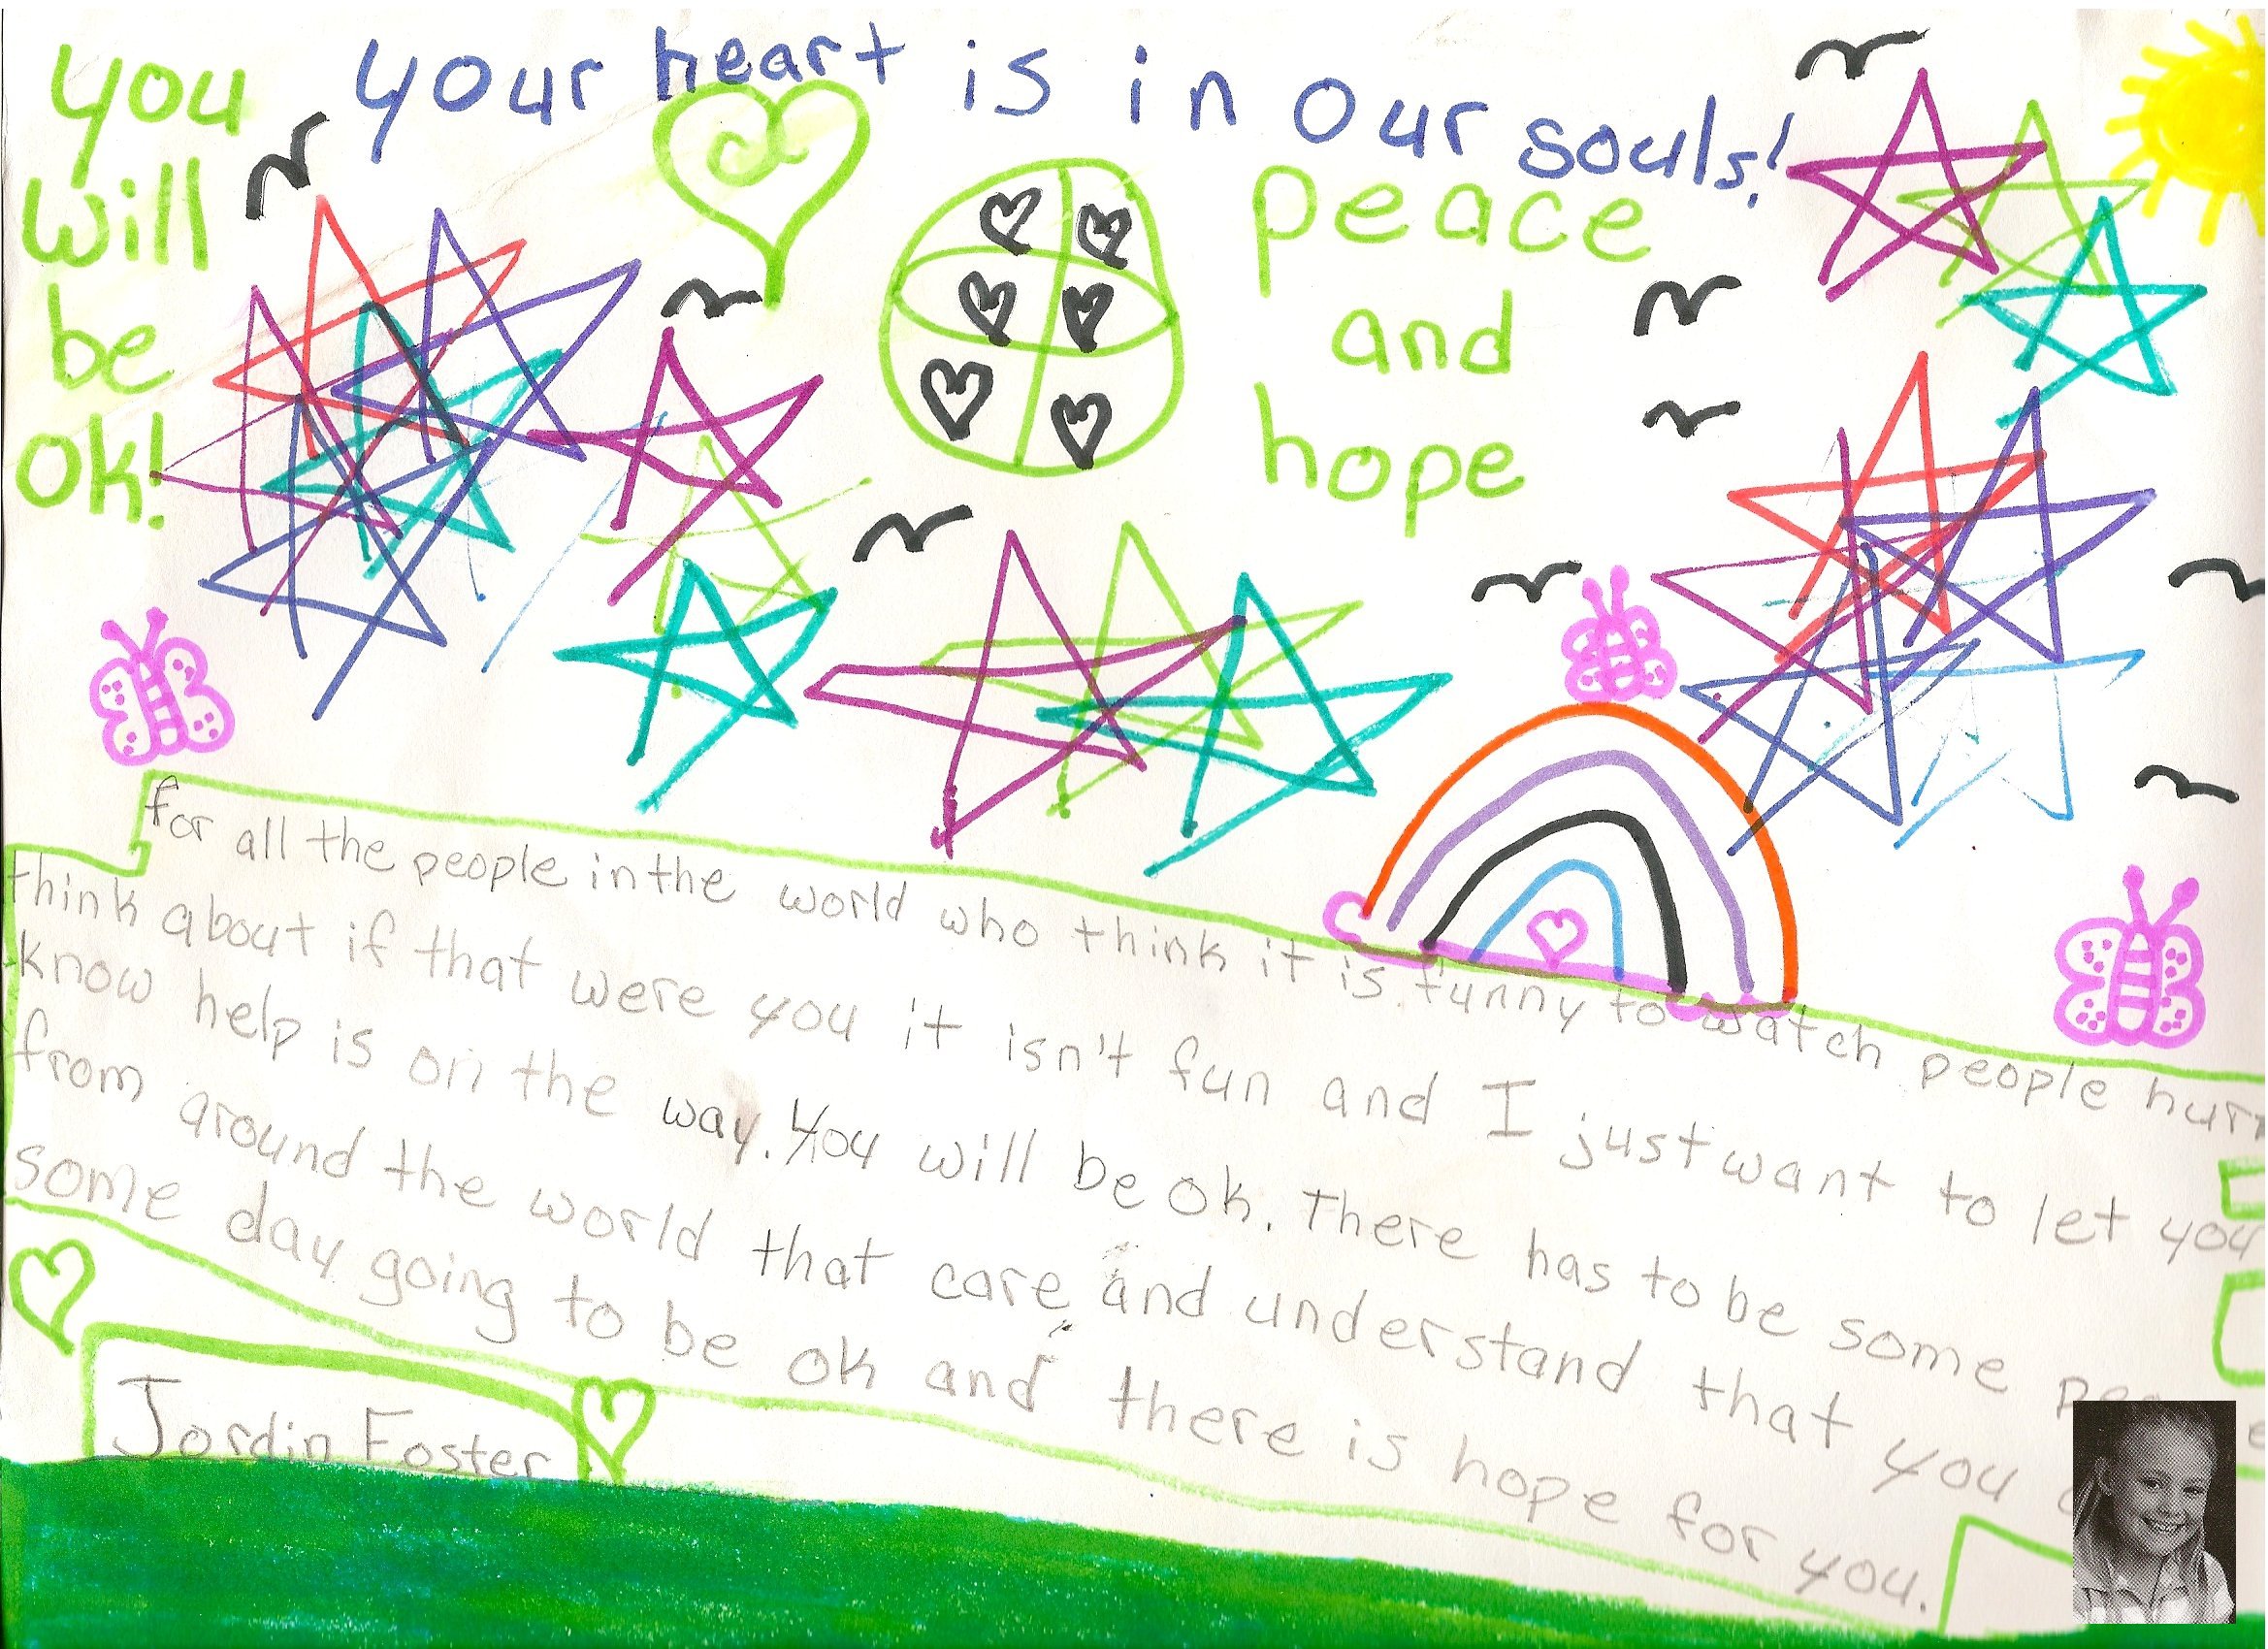 you
will
be
ok!
your heart is in our souls!
peace
and
hope
for all the people in the world who think it is funny to watch people hurt
think about if that were you it isn't fun and I just want to let you
know help is on the way. You will be ok. There has to be some
from around the world that care and understand that you
some day going to be ok and there is hope for you.
Jordin Foster